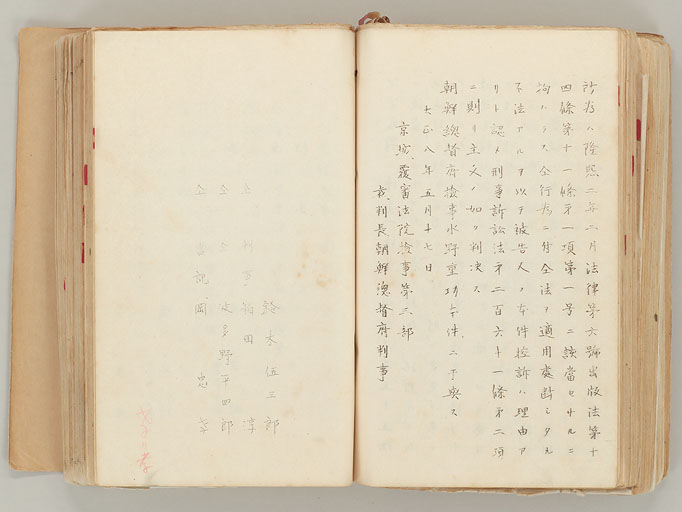 所為ハ隆熙三年二月法律第六號出版法第十
四條第十一條第一項第一号ニ該當セサルニ
拘ハラス仝行為ニ付仝法ヲ適用處斷シタル
不法アルヲ以テ被告人ノ本件控訴ハ理由ア
リト認メ刑事訴訟法第二百六十一條第二項
ニ則リ主文ノ如ク判決ス
朝鮮總督府檢事水野重功本件ニ干與ス
大正八年五月十七日
京城覆審法院檢事第二部
裁判長朝鮮總督府判事
鈴木伍三郎
仝 判事 田 淳
仝 仝 野平四郎
仝 書記 岡 忠孝